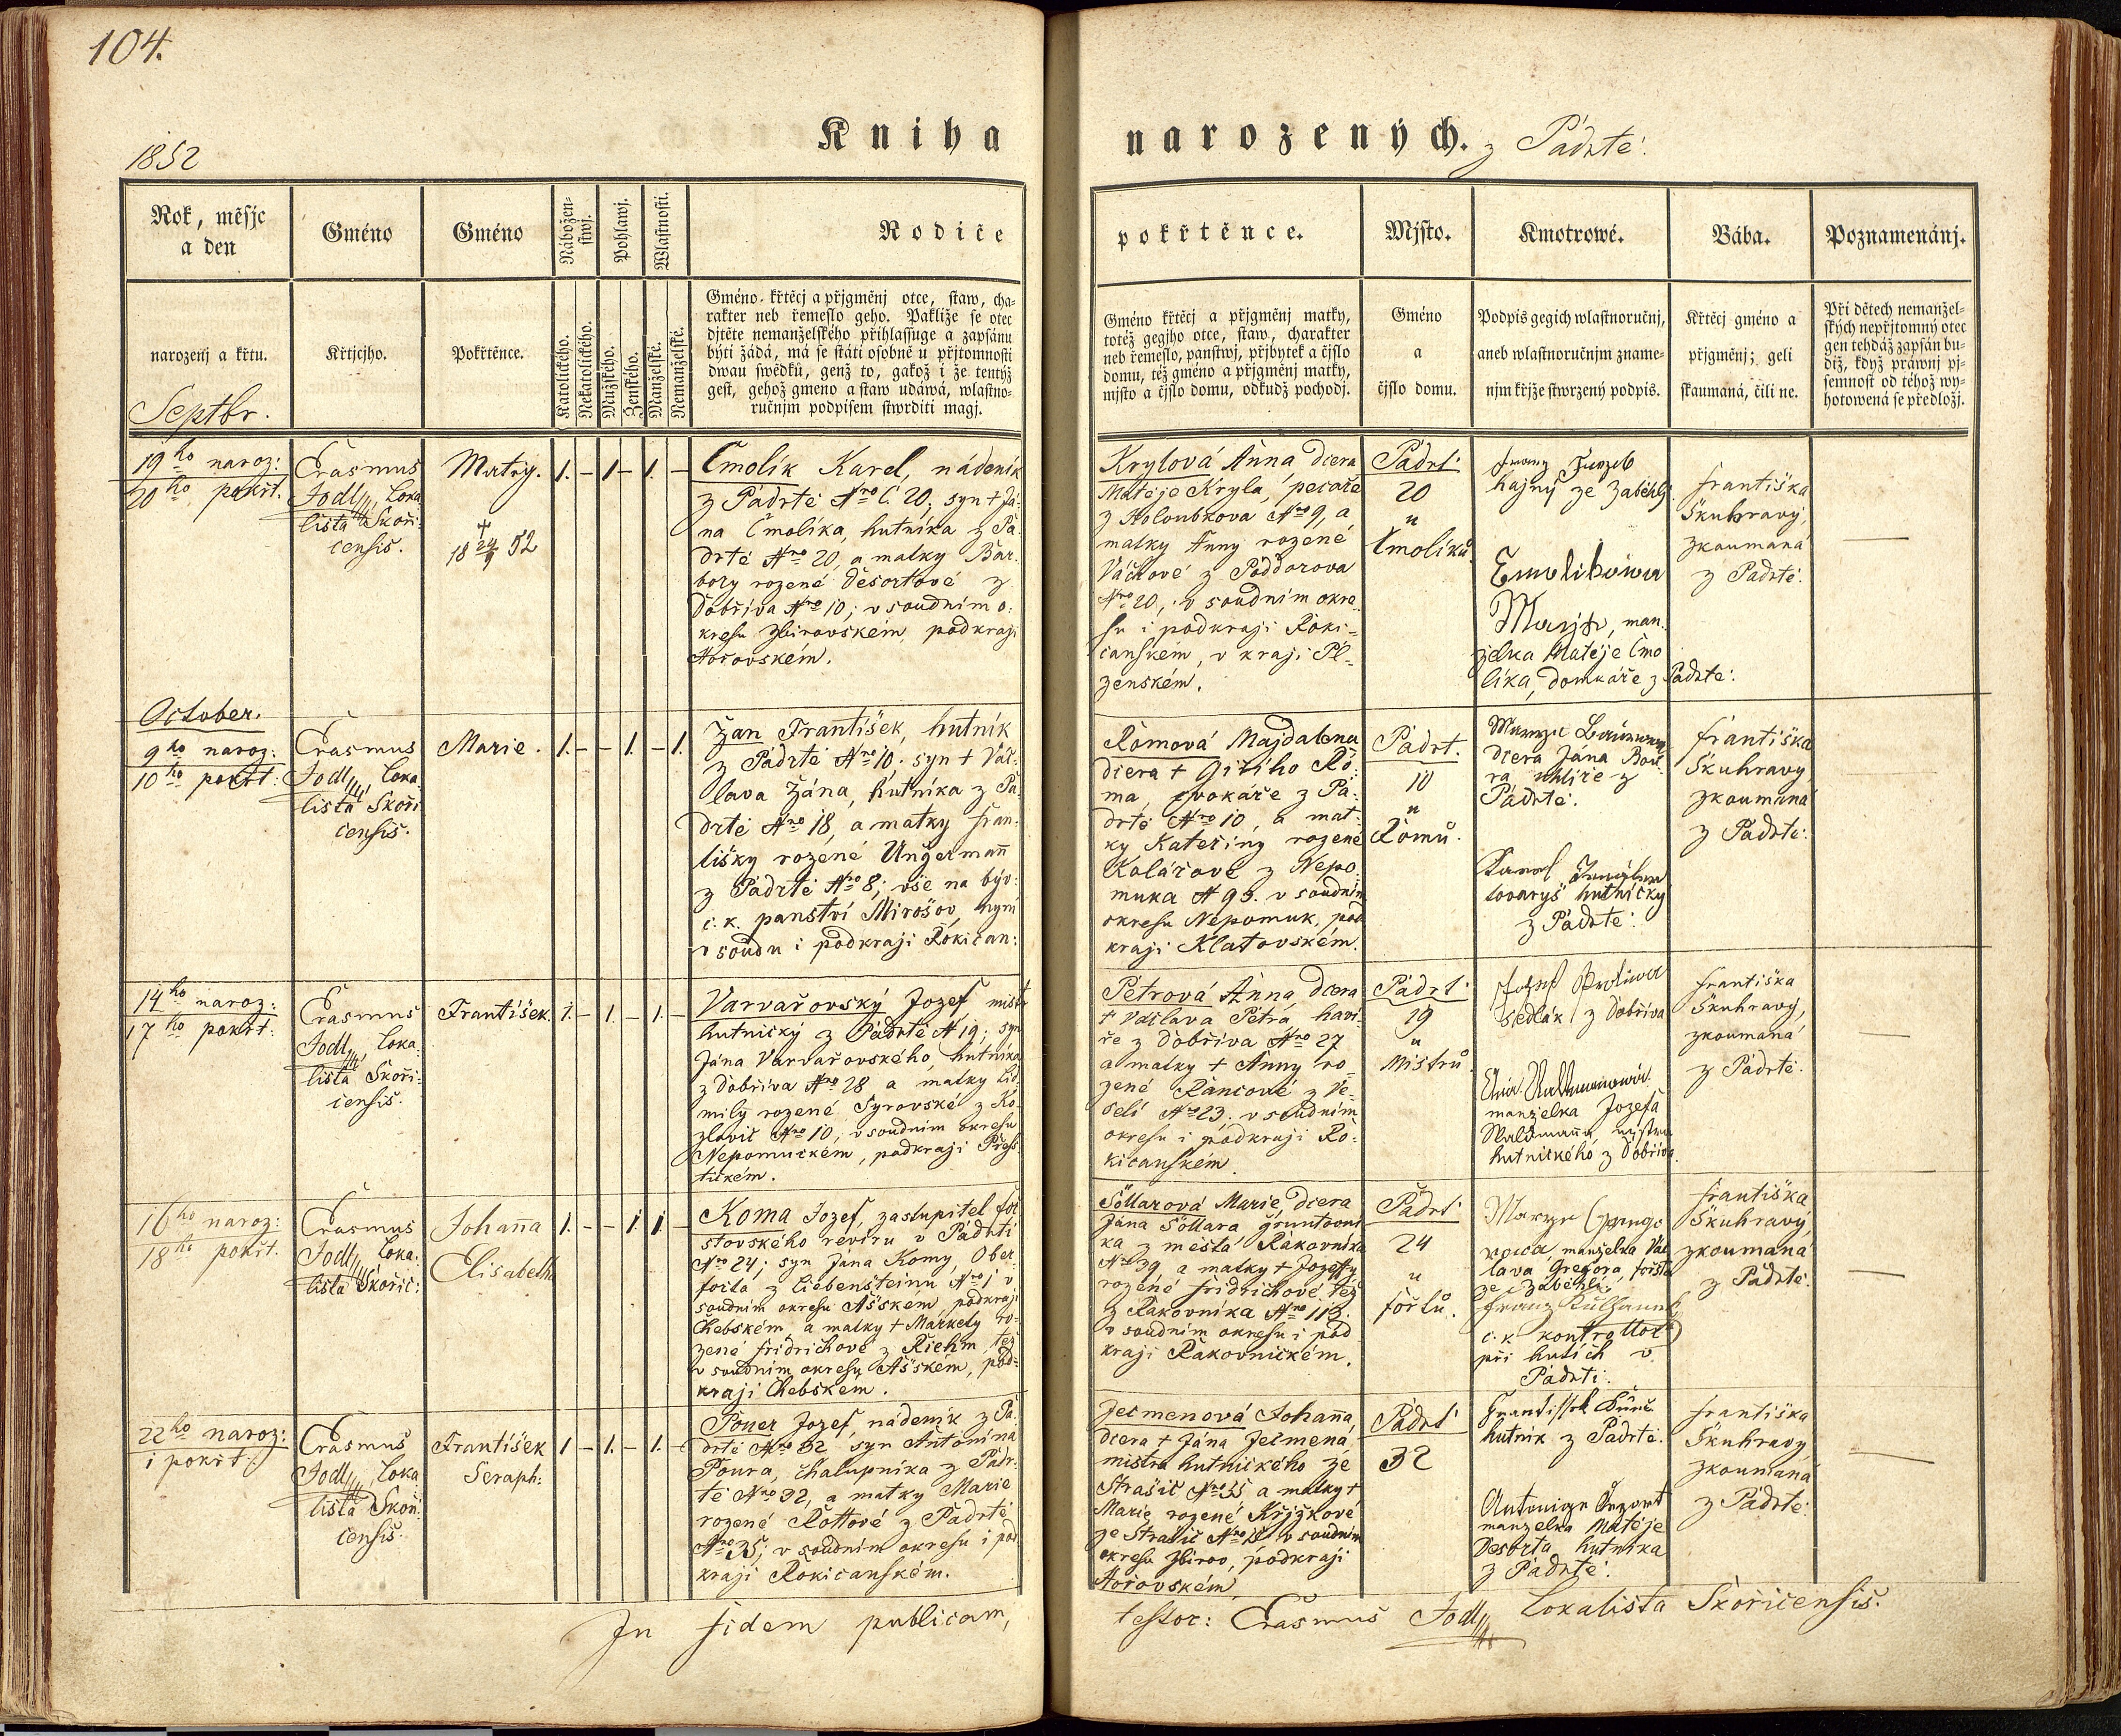 104.
1852
Kniha narozených. z Pádrtě.
Rok, měsjc
a den
Gméno
Gméno
Nábožen-
stwj.
Pohlawj.
Wlastnosti.
Rodiče
pokřtěnce.
Mjsto.
Kmotrowé.
Bába.
Poznamenánj.
narozenj a křtu.
Křtjcjho.
Pokřtěnce.
Katolického.
Nekatolického.
Mužského.
Ženského.
Manželské.
Nemanželské.
Gméno křtěcj a přjgměnj otce, staw, cha-
rakter neb řemeslo geho. Pakliže se otec
djtěte nemanželského přihlassuge a zapsánu
býti žádá, má se státi osobně u přjtomnosti
dwau swědků, genž to, gakož i že tentýž
gest, gehož gmeno a staw udáwá, wlastno-
ručnjm podpisem stwrditi magj.
Gméno křtěcj a přjgměnj matky,
totéž gegjho otce, staw, charakter
neb řemeslo, panstwj, přjbytek a čjslo
domu, též gméno a přjgměnj matky,
mjsto a čjslo domu, odkudž pochodj.
Gméno
a
čjslo domu.
Podpis gegich wlastnoručnj,
aneb wlastnoručnjm zname-
njm křjže stwrzený podpis.
Křtěcj gméno a
přjgměnj; geli
skaumaná, čili ne.
Při dětech nemanžel-
ských nepřjtomný otec
gen tehdáž zapsán bu-
diž, když práwnj pj-
semnost od téhož wy-
hotowená se předložj.
Septbr.
19ho naroz:
20ho pokřt.
Erasmus
Jodl, Loka
lista Skoři
censis.
Matěj.
† 18 24/9 52
1. – 1 – 1. –
Čmolík Karel, nádeník
z Pádrtě Nro C 20, syn † Já-
na Čmolíka, hutníka z Pá
drtě Nro 20, a matky Bar
bory rozené Desortové z
Dobříva Nro 10; v soudním o:
kresu Zbirovském, podkraji
Hořovském.
Krylová Anna dcera
Matěje Kryla, pecaře
z Holoubkova Nro 9, a
matky Anny rozené
Váchové z Poddorova
Nro 20, v soudním okre
su i podkraji Roki-
canském, v kraji Pl-
zenském.
Pádrt:
20
u
Čmolíků.
hajný ze Záběhlý.
Čmolíkowa
Marja, man.
želka Matěje Čmo
líka, domkáře z Pádrtě.
Františka
Skuhravý,
zkoumaná
z Pádrtě.
October.
9ho naroz:
10ho pokřt:
Erasmus
Jodl, Loka
lista Skoři
censis.
Marie.
1. – – 1. – 1.
Žan František, hutník
z Pádrtě Nro 10. syn † Vác-
lava Žána, hutníka z Pá
drtě Nro 18, a matky Fran-
tišky rozené Ungermann
z Pádrtě Nro 8; vše na býv:
c. k. panství Mirošov, nyní
v soudu i podkraji Rokican:
Römová Majdalena
dcera † Giřího Rö-
ma, cvokáře z Pá:
drtě Nro 10, a mat:
ky Kateřiny rozené
Kolářove z Nepo
muka N 95. v soudním
okresu Nepomuk, pod
kraji Klatovském.
Pádrt.
10
u
Römů.
dcera Jána Bau:
ra uhlíře z
Pádrtě.
Karel
tovaryš hutnický
z Pádrtě:
Františka
Skuhravý,
zkoumaná
z Pádrtě:
14ho naroz:
17ho pokřt:
Erasmus
Jodl, Loka:
lista Skoři:
censis.
František.
1. – 1. – 1. –
Varvařovský Jozef mistr
hutnický z Pádrtě N 19; syn
Jána Varvařovského, hutníka
z Dobříva Nro 28 a matky Lid
mily rozené Syrovské z Ko-
zlovic Nro 10, v soudním okresu
Nepomuckém, podkraji Přešs
tickém.
Petrová Anna dcera
† Václava Petra haví-
ře z Dobříva Nro 27
a matky † Anny ro-
zené Rancové z Ve-
selí Nro 23. v soudním
okresu i podkraji Ro:
kicanském.
Pádrt:
19
u
Mistrů.
sedlák z Dobříva
manželka Jozefa
Waldmanna mistra
hutnického z Dobříva.
Františka
Skuhravý,
zkoumaná
z Pádrtě.
16ho naroz:
18ho pokřt.
Erasmus
Jodl, Loka.
lista Skořic:
Johanna
Elisabeth
1. – – 1 1. –
Koma Jozef, zastupitel for
stovského revíru v Pádrti
Nro 24; syn Jána Komy, Ober
foršta z Liebensteinu Nro 1 v
soudním okresu Ašském, podkraji
Chebském a matky † Markety ro-
zené Fridrichové z Riehm, též
v soudním okresu Ašském, pod-
kraji Chebském.
Söllarová Marie, dcera
Jána Söllara gruntovní
ka z města Rakovníka
Nro 39 a matky † Jozefy
rozené Fridrichové též
z Rakovníka Nro 113.
v soudním okresu i pod
kraji Rakovnickém.
Pádrt:
24
u
Forštů.
manželka Vác
lava Gregora, foršta
ze Záběhlí.
Franz
c. k. kontrollor
při hutích v
Pádrti.
Františka
Skuhravý,
zkoumaná
z Pádrtě.
22ho naroz:
i pokřt:
Erasmus
Jodl, Loka
lista Skoři
censis.
František
Seraph:
1 – 1. – 1. –
Pouer Jozef, nádeník z Pá
drtě Nro 32 syn Antonína
Poura, chalupníka z Pádr-
tě Nro 32, a matky Marie
rozené Rottové z Pádrtě
Nro 35; v soudním okresu i pod
kraji Rokicanském.
Ječmenová Johanna
dcera † Jána Ječmena
mistra hutnického ze
Strašic Nro 35 a matky †
Marie rozené Křížkové
ze Strašic v soudním
okresu Zbirov, podkraji
Hořovském.
Pádrt:
32
hutník z Pádrtě.
manželka Matěje
Desorta hutníka
z Pádrtě.
Františka
Skuhravý
zkoumaná
z Pádrtě
In fidem publicam,
testor: Erasmus Jodl Lokalista Skořicensis.